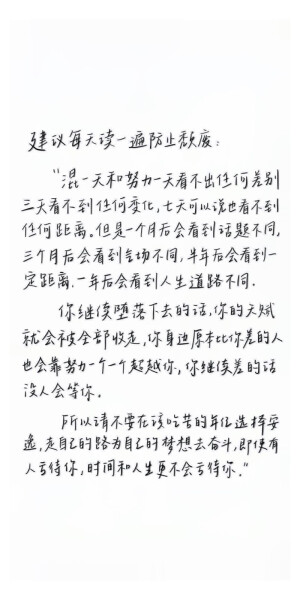 建议每天读一遍防止颓废：
“混一天和努力一天看不出任何差别
三天看不到任何变化，七天可以说也看不到
任何距离。但是一个月后会看到话题不同，
三个月后会看到气场不同，半年后会看到一
定距离，一年后会看到人生道路不同.
你继续堕落下去的话，你的天赋
就会被全部收走，你身边原本比你差的人
也会靠努力一个一个超越你，你继续差的话
没人会等你.
所以请不要在该吃苦的年纪选择安
逸，走自己的路为自己的梦想去奋斗，即便有
人亏待你，时间和人生更不会亏待你.“